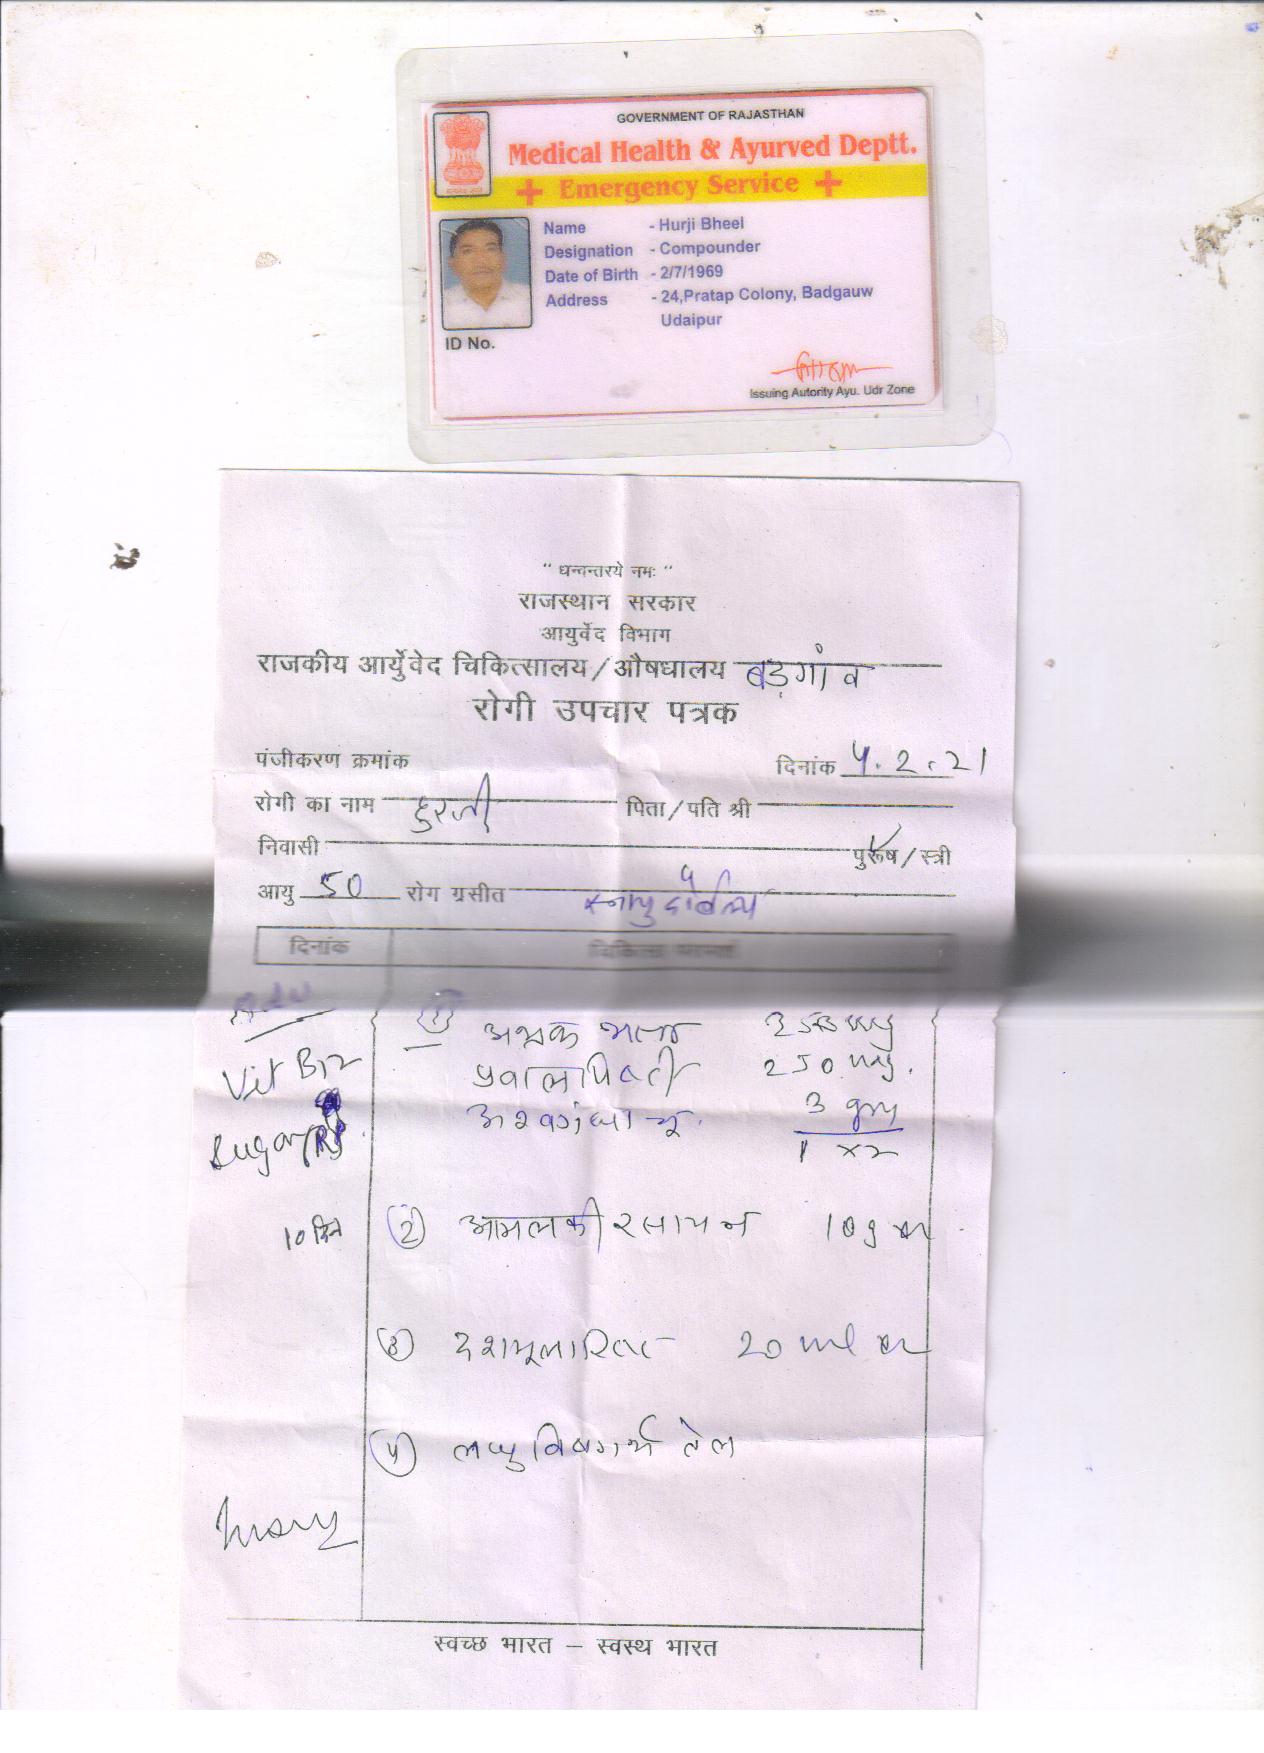 GOVERNMENT OF RAJASTHAN
Medical Health & Ayurved Deptt.
+ Emergency Service +
Name - Hurji Bheel
Designation - Compounder
Date of Birth - 2/7/1969
Address - 24,Pratap Colony, Badgauw
Udaipur
ID No.
Issuing Autority Ayu. Udr Zone
" धन्वन्तरये नमः "
राजस्थान सरकार
आयुर्वेद विभाग
राजकीय आर्युेवेद चिकित्सालय / औषधालय बड़गांव
रोगी उपचार पत्रक
पंजीकरण क्रमांक दिनांक 4.2.21
रोगी का नाम हुरजी पिता / पति श्री
निवासी पुरूष / स्त्री
आयु 50 रोग ग्रसीत स्नायु दौर्बल्य
दिनांक
Adv
Vit B12
Sugar
10 दिन
① अभ्रक भस्म 250 mg
प्रवाल पिष्टी 250 mg.
अश्वगंधा चू. 3 gm
1 x2
② आमलकी रसायन 10 gm
③ दशमूलारिष्ट 20 ml
④ लघु विषगर्भ तेल
स्वच्छ भारत – स्वस्थ भारत